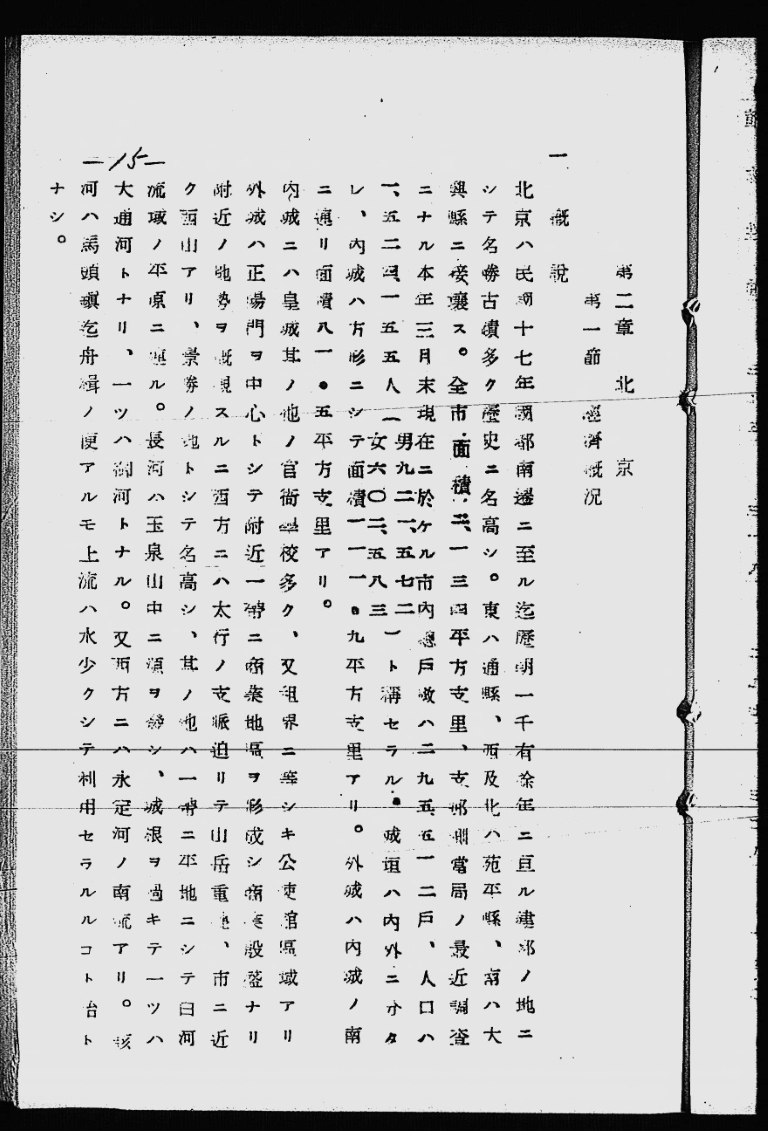 第二章　北　京
第一節　經濟概況
一　概　說
北京ハ民國十七年國都南遷ニ至ル迄歷朝一千有餘年ニ亘ル建都ノ地ニ
シテ名勝古蹟多ク歷史ニ名高シ。東ハ通縣、西及北ハ苑平縣、南ハ大
興縣ニ接壤ス。全市面積二、一三四平方支里、支那側當局ノ最近調査
ニナル本年三月末現在ニ於ケル市內總戶數ハ二九五五一二戶、人口ハ
一、五二四一五五人（男九二一、五七二女六〇二、五八三）ト稱セラル。城垣ハ內外ニ分タ
レ、內城ハ方形ニシテ面積一一一・九平方支里アリ。外城ハ內城ノ南
ニ通リ面積八一・五平方支里アリ。
內城ニハ皇城其ノ他ノ官衙學校多ク、又租界ニ等シキ公使館區域アリ
外城ハ正陽門ヲ中心トシテ附近一帶ニ商業地區ヲ形成シ商賣殷盛ナリ
附近ノ地勢ヲ概觀スルニ西方ニハ太行ノ支脈迫リテ山岳重疊、市ニ近
ク西山アリ、景勝ノ地トシテ名高シ、其ノ他ハ一帶ニ平地ニシテ白河
流域ノ平原ニ連ル。長河ハ玉泉山中ニ源ヲ發シ、城濠ヲ過キテ一ツハ
大通河トナリ、一ツハ御河トナル。又西方ニハ永定河ノ南流アリ。該
河ハ馬頭鎭迄舟楫ノ便アルモ上流ハ水少クシテ利用セラルルコト殆ト
ナシ。
—15—